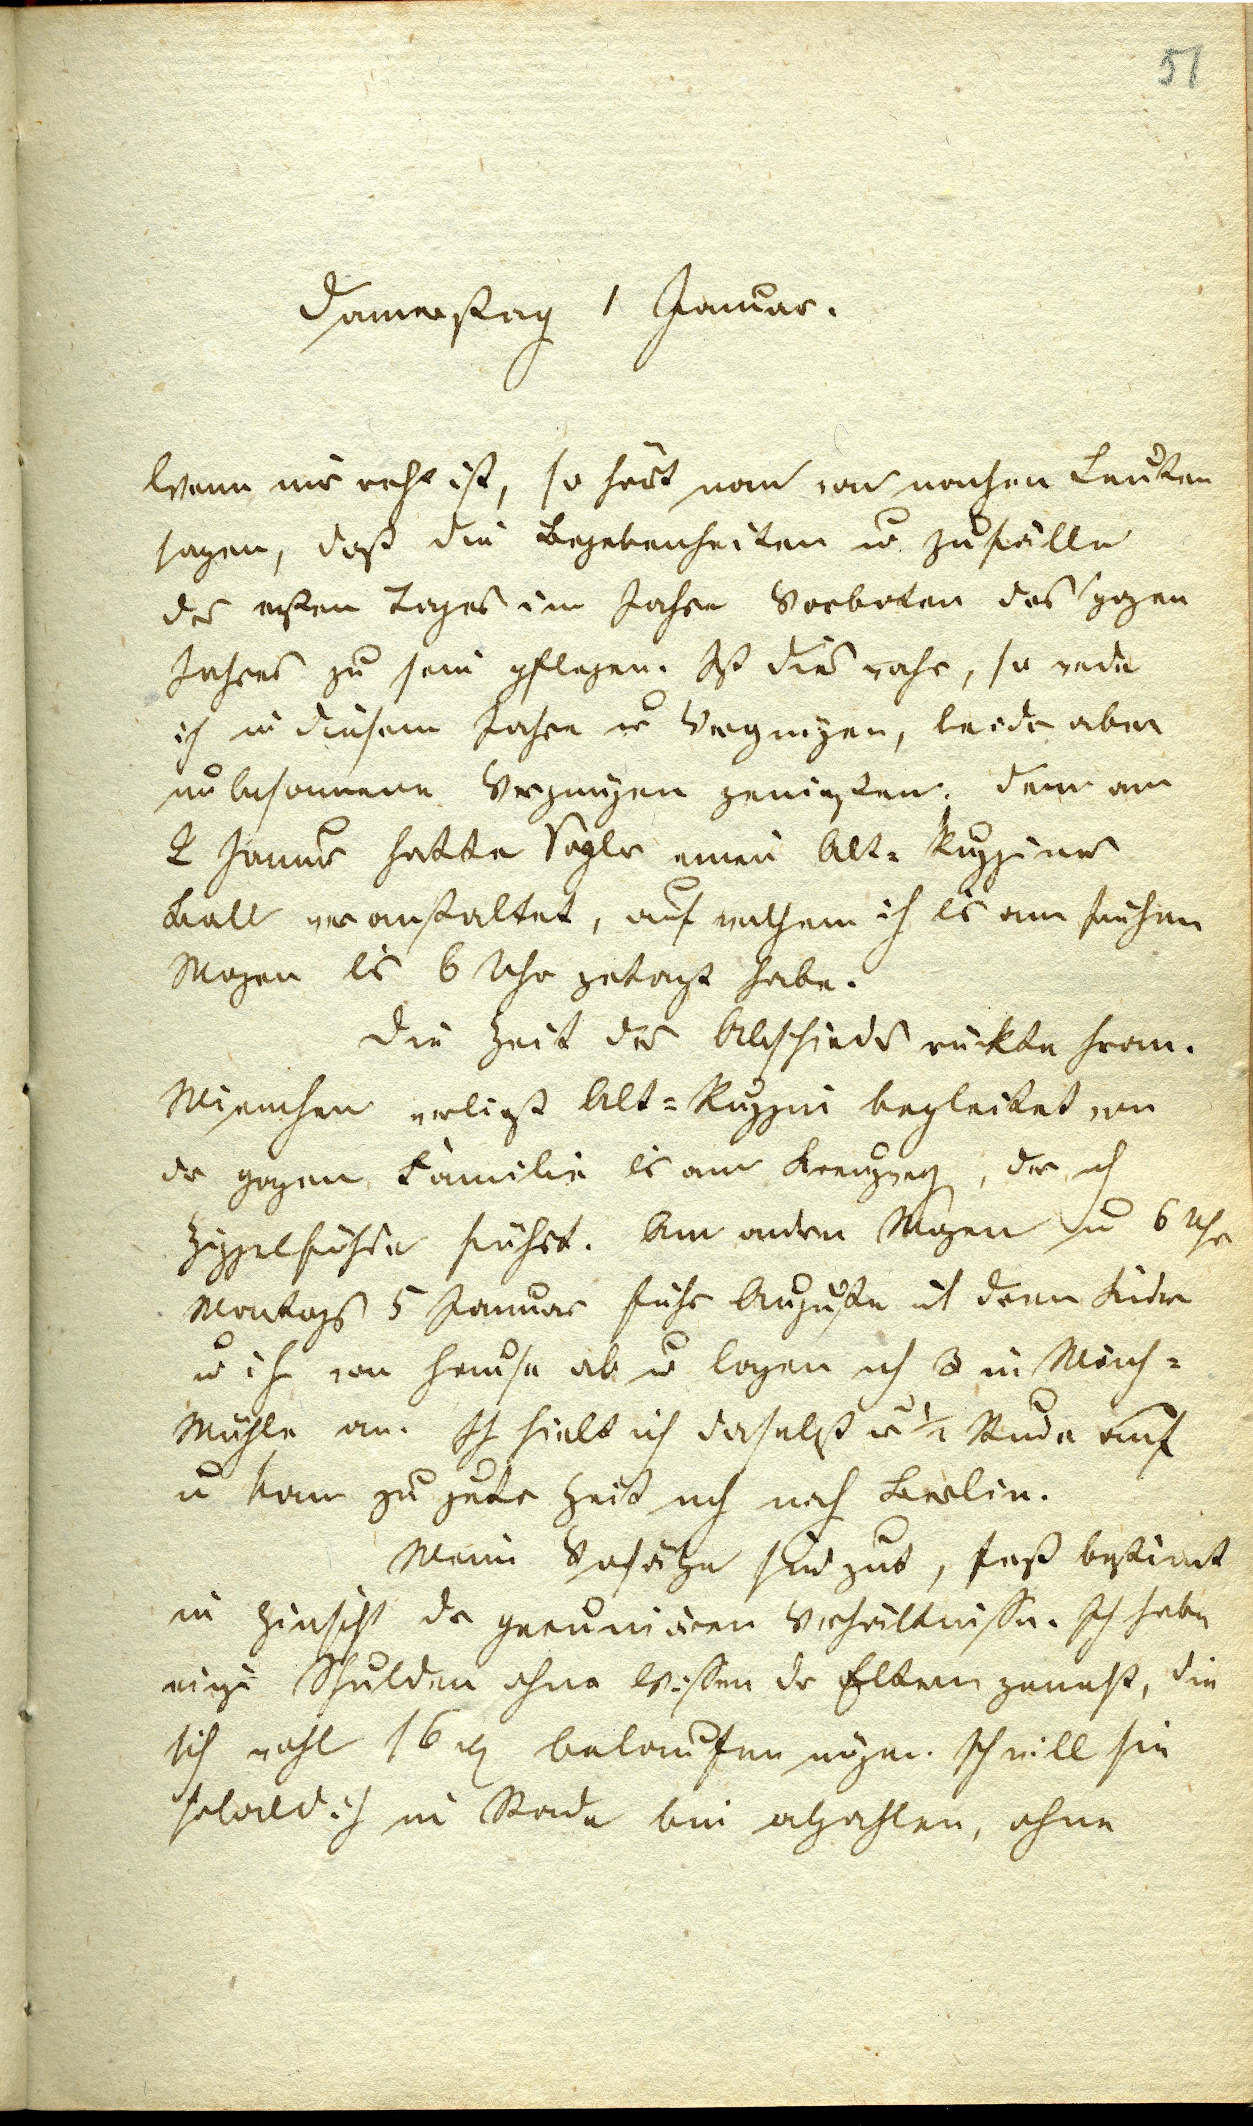 51
Donnerstag 1 Januar.
Wenn mir recht ist, so hört man von manchen Leuten
sagen, daß die Begebenheiten u. Zufälle
des ersten Tages im Jahre Vorboten des ganzen
Jahres zu sein pflegen. Ist dies wahr, so werde
ich in diesem Jahre Vergnügen, leider aber
unbesonnene Vergnügen genießen; denn am
Januar hatte einen Alt-Ruppiner
Ball veranstaltet, auf welchem ich bis am frühen
Morgen bis 6 Uhr getanzt habe.
Die Zeit des Abschieds rückte heran.
Mienchen verließ Alt-Ruppin begleitet von
der ganzen Familie bis am Kreuzweg, der nach
führt. Am andern Morgen um 6 Uhr
Montags 5 Januar fuhr Auguste mit dem Kinde
u ich von Hause ab u langen nach 3 in
Mühle an. Ich hielt mich daselbst 1/2 Stunde auf
u kam zu guter Zeit noch nach Berlin.
Meine Vorsätze sind gut, fest bestimmt
in Hinsicht der pecuniären Verhältnisse. Ich habe
einige Schulden ohne Wissen der Eltern gemacht, die
sich wohl 16 belaufen mögen. Ich will sie
sobald ich im Stande bin abzahlen, ohne